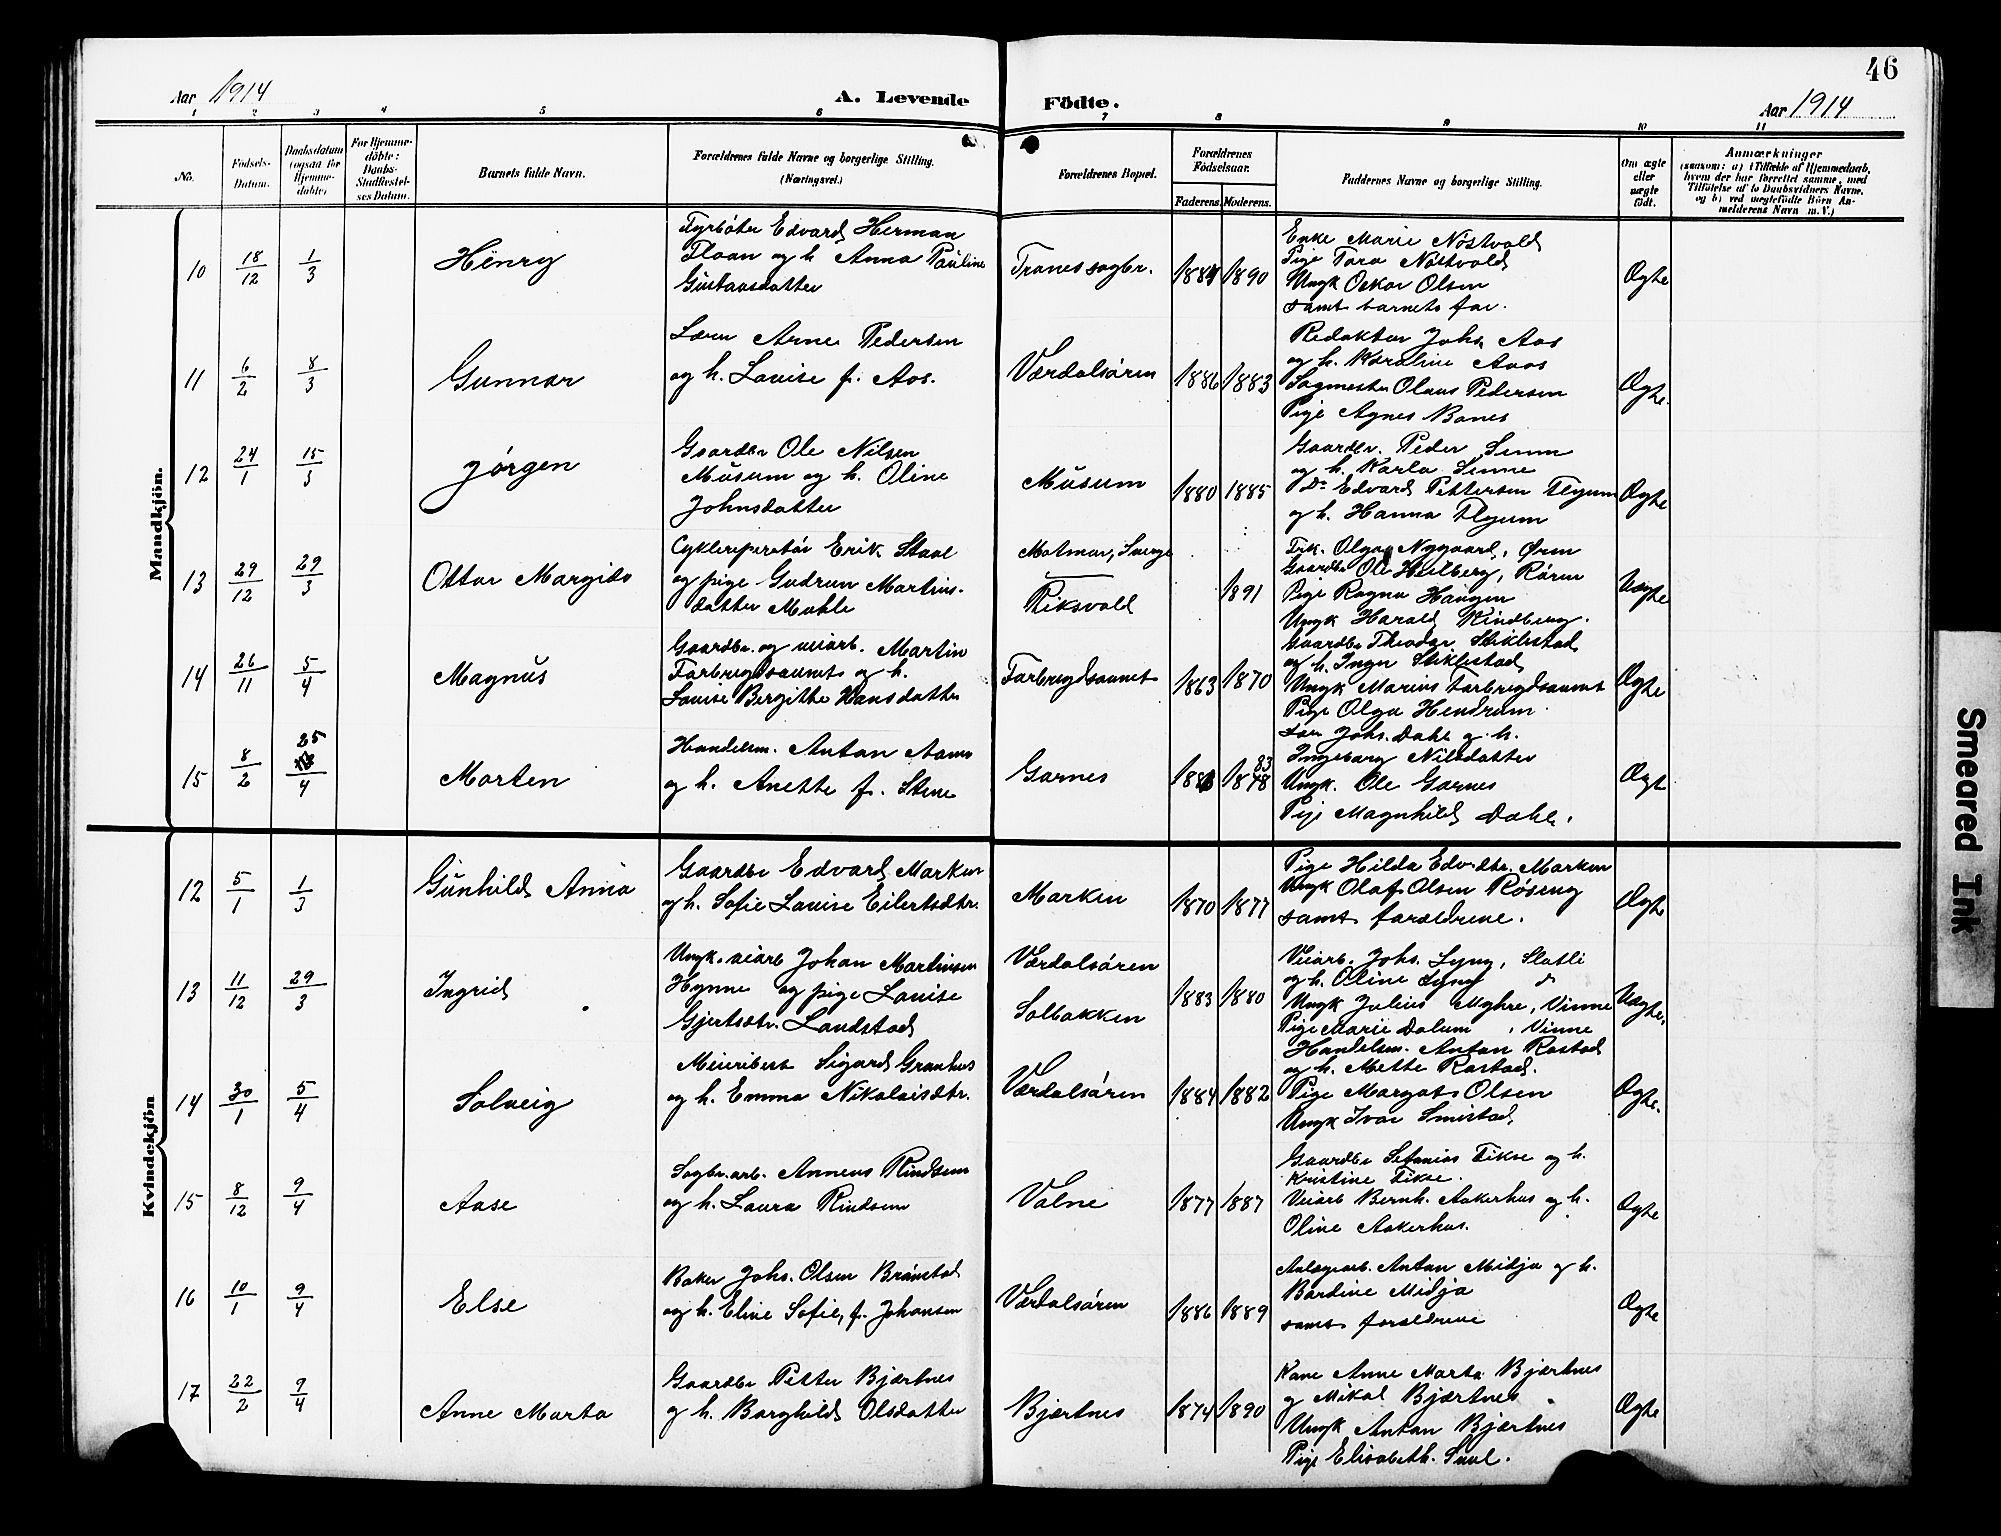 46
Aar 1914
A. Levende
Födte.
Aar 1914
1 2 3 4 5 6 7 8 9 10 11
No.
Födsels-
Datum.
Daabsdatum
(ogsaa for
Hjemme-
döbte)
For Hjemme-
döbte:
Daabs-
Stadfæstel-
ses Datum.
Barnets fulde Navn.
Forældrenes fulde Navne og borgerlige Stilling.
(Næringsvei.)
Forældrenes Bopæl.
Forældrenes
Födselsaar.
Faderens. Moderens.
Faddernes Navne og borgerlige Stilling.
Om ægte
eller
uægte
födt.
Anmærkninger
(saasom: a) i Tilfælde af Hjemmedaab,
hvem der har forrettet samme, med
Tilföielse af to Daabsvidners Navne,
og b) ved uægtefödte Börn An-
melderens Navn m. V.)
Mandkjön.
10
18/12
1/3
Henry
Fyrböter Edvard Herman
Floan og h. Anna Pauline
Gustavsdatter
Tranes sagbr.
1884
1890
Enke Marie Nöstvold
Pige Tora Nöstvold
Ungk Oskar Olsen
samt barnets far.
Ægte
11
6/2
8/3
Gunnar
Lærer Arne Pedersen
og h. Louise f. Aos.
Værdalsören
1886
1883
Redaktör Johs Aos
og h. Karoline Aos
Sagmester Olaus Pedersen
Pige Agnes Bones
Ægte.
12
24/1
15/3
Jörgen
Gaardbr Ole Nilsen
Musum og h. Oline
Johnsdatter
Musum
1880
1885
Gaardbr. Peder
og h. Karla
Do Edvard Pettersen Flyum
og h. Hanna Flyum
Ægte
13
29/12
29/3
Ottar Margido
Cyklereperatör Erik Staal
og pige Gudrun Martins-
datter Mohle
Matmar, Sverge
Riksvold
1891
Frk. Olga Nygaard, Ören
Gaardbr Ole Hallberg, Rören
Pige Ragna Haugen
Ungk Harald Kindberg.
Uægte
14
26/11
5/4
Magnus
Gaardbr. og veiarb. Martin
Farbregdsaunet og h.
Louise Bergitte Hansdatter
Farbregdsaunet
1863
1870
Gaardbr Theodor Stiklestad
og h. Inger Stiklestad
Ungk Marius Farbregdsaunet
Pige Olga Hendrum.
Ægte
15
8/2
25/4
Morten
Handelsm. Anton Aanes
og h. Anette f. Stene
Garnes
83
1878
Johs. Dahl og h.
Ingeborg Nilsdatter
Ungk. Ole Garnes
Pige Magnhild Dahl.
Ægt
Kvindekjön
12
5/1
1/3
Gunhild Anna
Gaardbr Edvard Marken
og h. Sofie Louise Eilertsdtr.
Marken
1870
1877
Pige Hilda Edvdtr. Marken
Ungk Olaf Olsen Röseng
samt forældrene.
Ægte
13
11/12
29/3
Ingrid
Ungk. veiarb Johan Martinsen
Hynne og pige Louise
Gjertsdtr. Landstad
Værdalsören
Solbakken
1883
1880
Veiarb. Johs. Lyng, Slatli
og h. Oline Lyng
Ungk Julius Myhre, Vinne
Pige Marie Dalum, Vinne
Uægte.
14
30/1
5/4
Solveig
Meieribest Sigurd Granhus
og h. Emma Nikolaisdtr.
Værdalsören
1884
1882
Handelsm. Anton Rostad
og h. Mette Rostad.
Pige Margot Olsen
Ungk Ivar Smistad.
Ægte.
15
8/12
9/4
Aase
Sagbr.arb. Anneus Rindsem
og h. Laura Rindsem
Volne
1877
1887
Gaardbr Sefanias Fikse og h.
Kristine Fikse.
Veiarb Bernh. Aakerhus og h.
Oline Aakerhus.
Ægte
16
10/1
9/4
Else
Baker Johs. Olsen Brönstad
og h. Eline Sofie, f. Johansen
Værdalsören
1886
1889
Anlægsarb. Anton Midja og h.
Bardine Midja
samt forældrene
Ægte
17
22/2
9/4
Anne Marta
Gaardbr Petter Bjærtnes
og h. Borghild Olsdatter
Bjærtnes
1874
1890
Kone Anne Marta Bjærtnes
og Mikal Bjærtnes
Ungk Anton Bjærtnes
Pige Elisabeth Suul.
Ægte
Smeared Ink